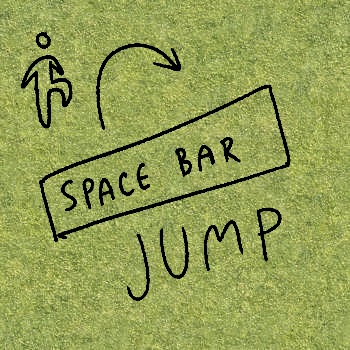 SPACE BAR
JUMP